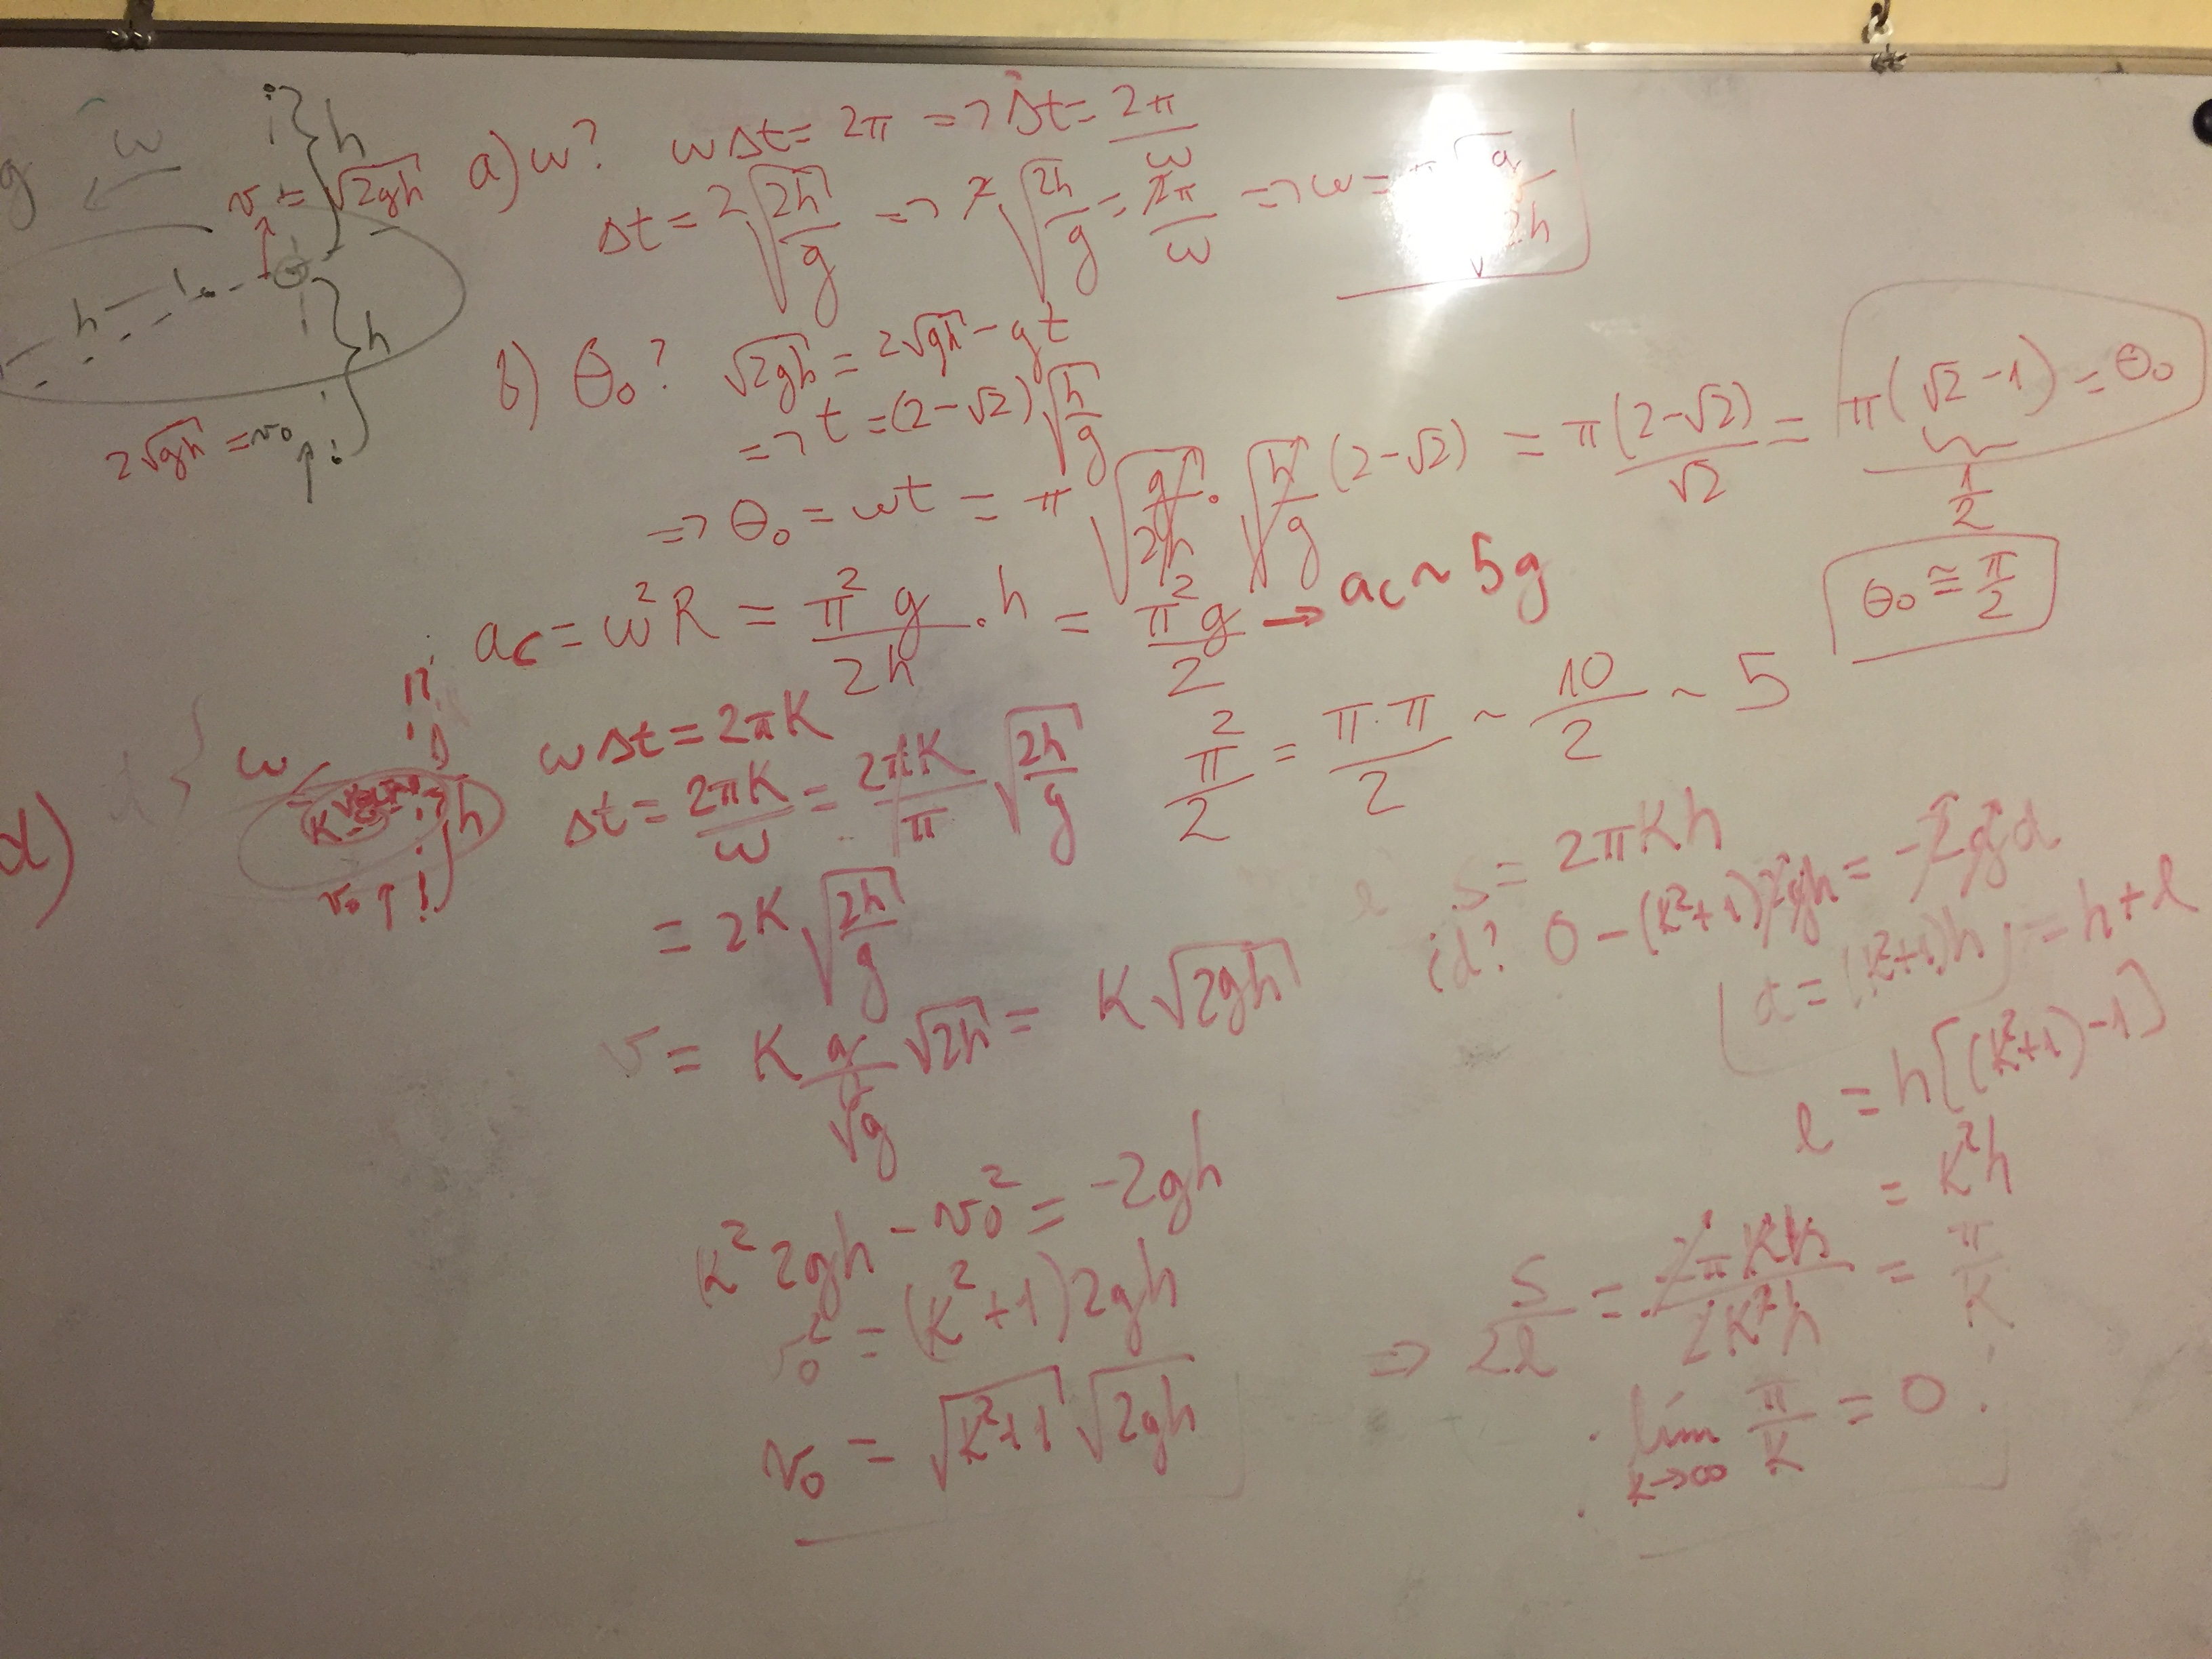 g
ω
h
v = √2gh
h
h
2√gh = v₀
a) ω? ωΔt = 2π => Δt = 2π/ω
Δt = 2√(2h/g) => 2√(2h/g) = 2π/ω => ω = π√(g/2h)
b) θ₀? √2gh = 2√gh - gt
=> t = (2-√2)√(h/g)
=> θ₀ = ωt = π√(g/2h) · √(h/g) (2-√2) = π(2-√2)/√2 = π(√2-1) = θ₀
1/2
θ₀ ≅ π/2
ac = ω²R = π²g/2h · h = π²g/2 → ac ~ 5g
π²/2 = π·π/2 ~ 10/2 ~ 5
d)
ω
K
h
v₀
ωΔt = 2πK
Δt = 2πK/ω = 2πK/π √(2h/g)
= 2K√(2h/g)
v = K g/√g √2h = K√2gh
K²2gh - v₀² = -2gh
v₀² = (K²+1)2gh
v₀ = √K²+1 √2gh
S = 2πKh
¿d? 0 - (K²+1)2gh = -2gd
d = (K²+1)h = h+l
l = h[(K²+1)-1]
= K²h
=> S/2l = 2πKh/2K²h = π/K
lím K→∞ π/K = 0